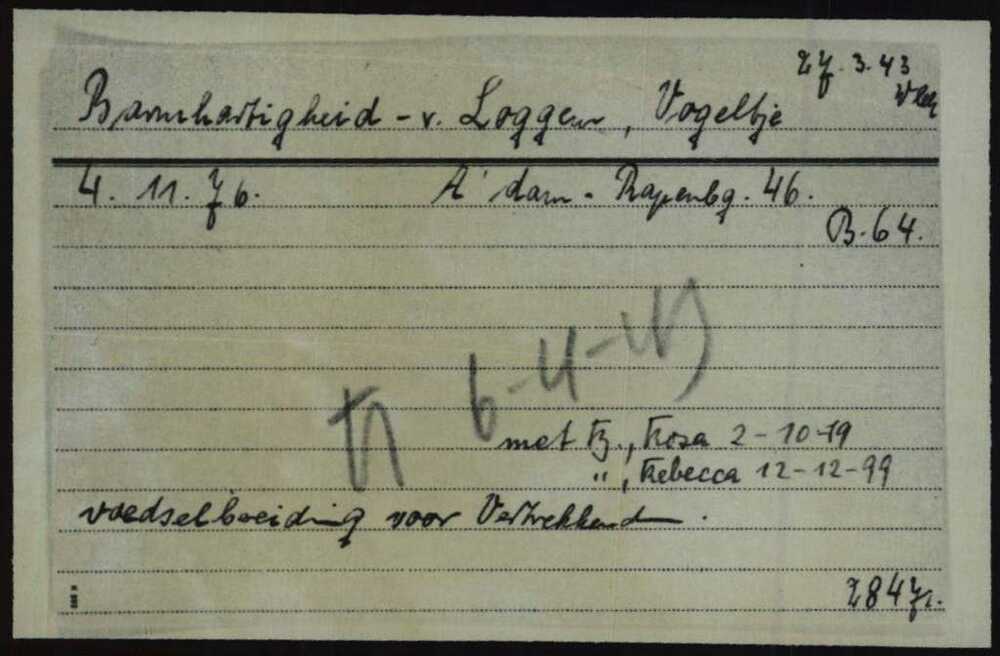 27.3.43
Barmhartigheid - v. Loggem, Vogeltje
4. 11. 76. A'dam - Rapenbg. 46.
B. 64.
6-4-43
met tz., Rosa 2-10-19
", Rebecca 12-12-99
voedselbereiding voor Vertrekkend.
28471.